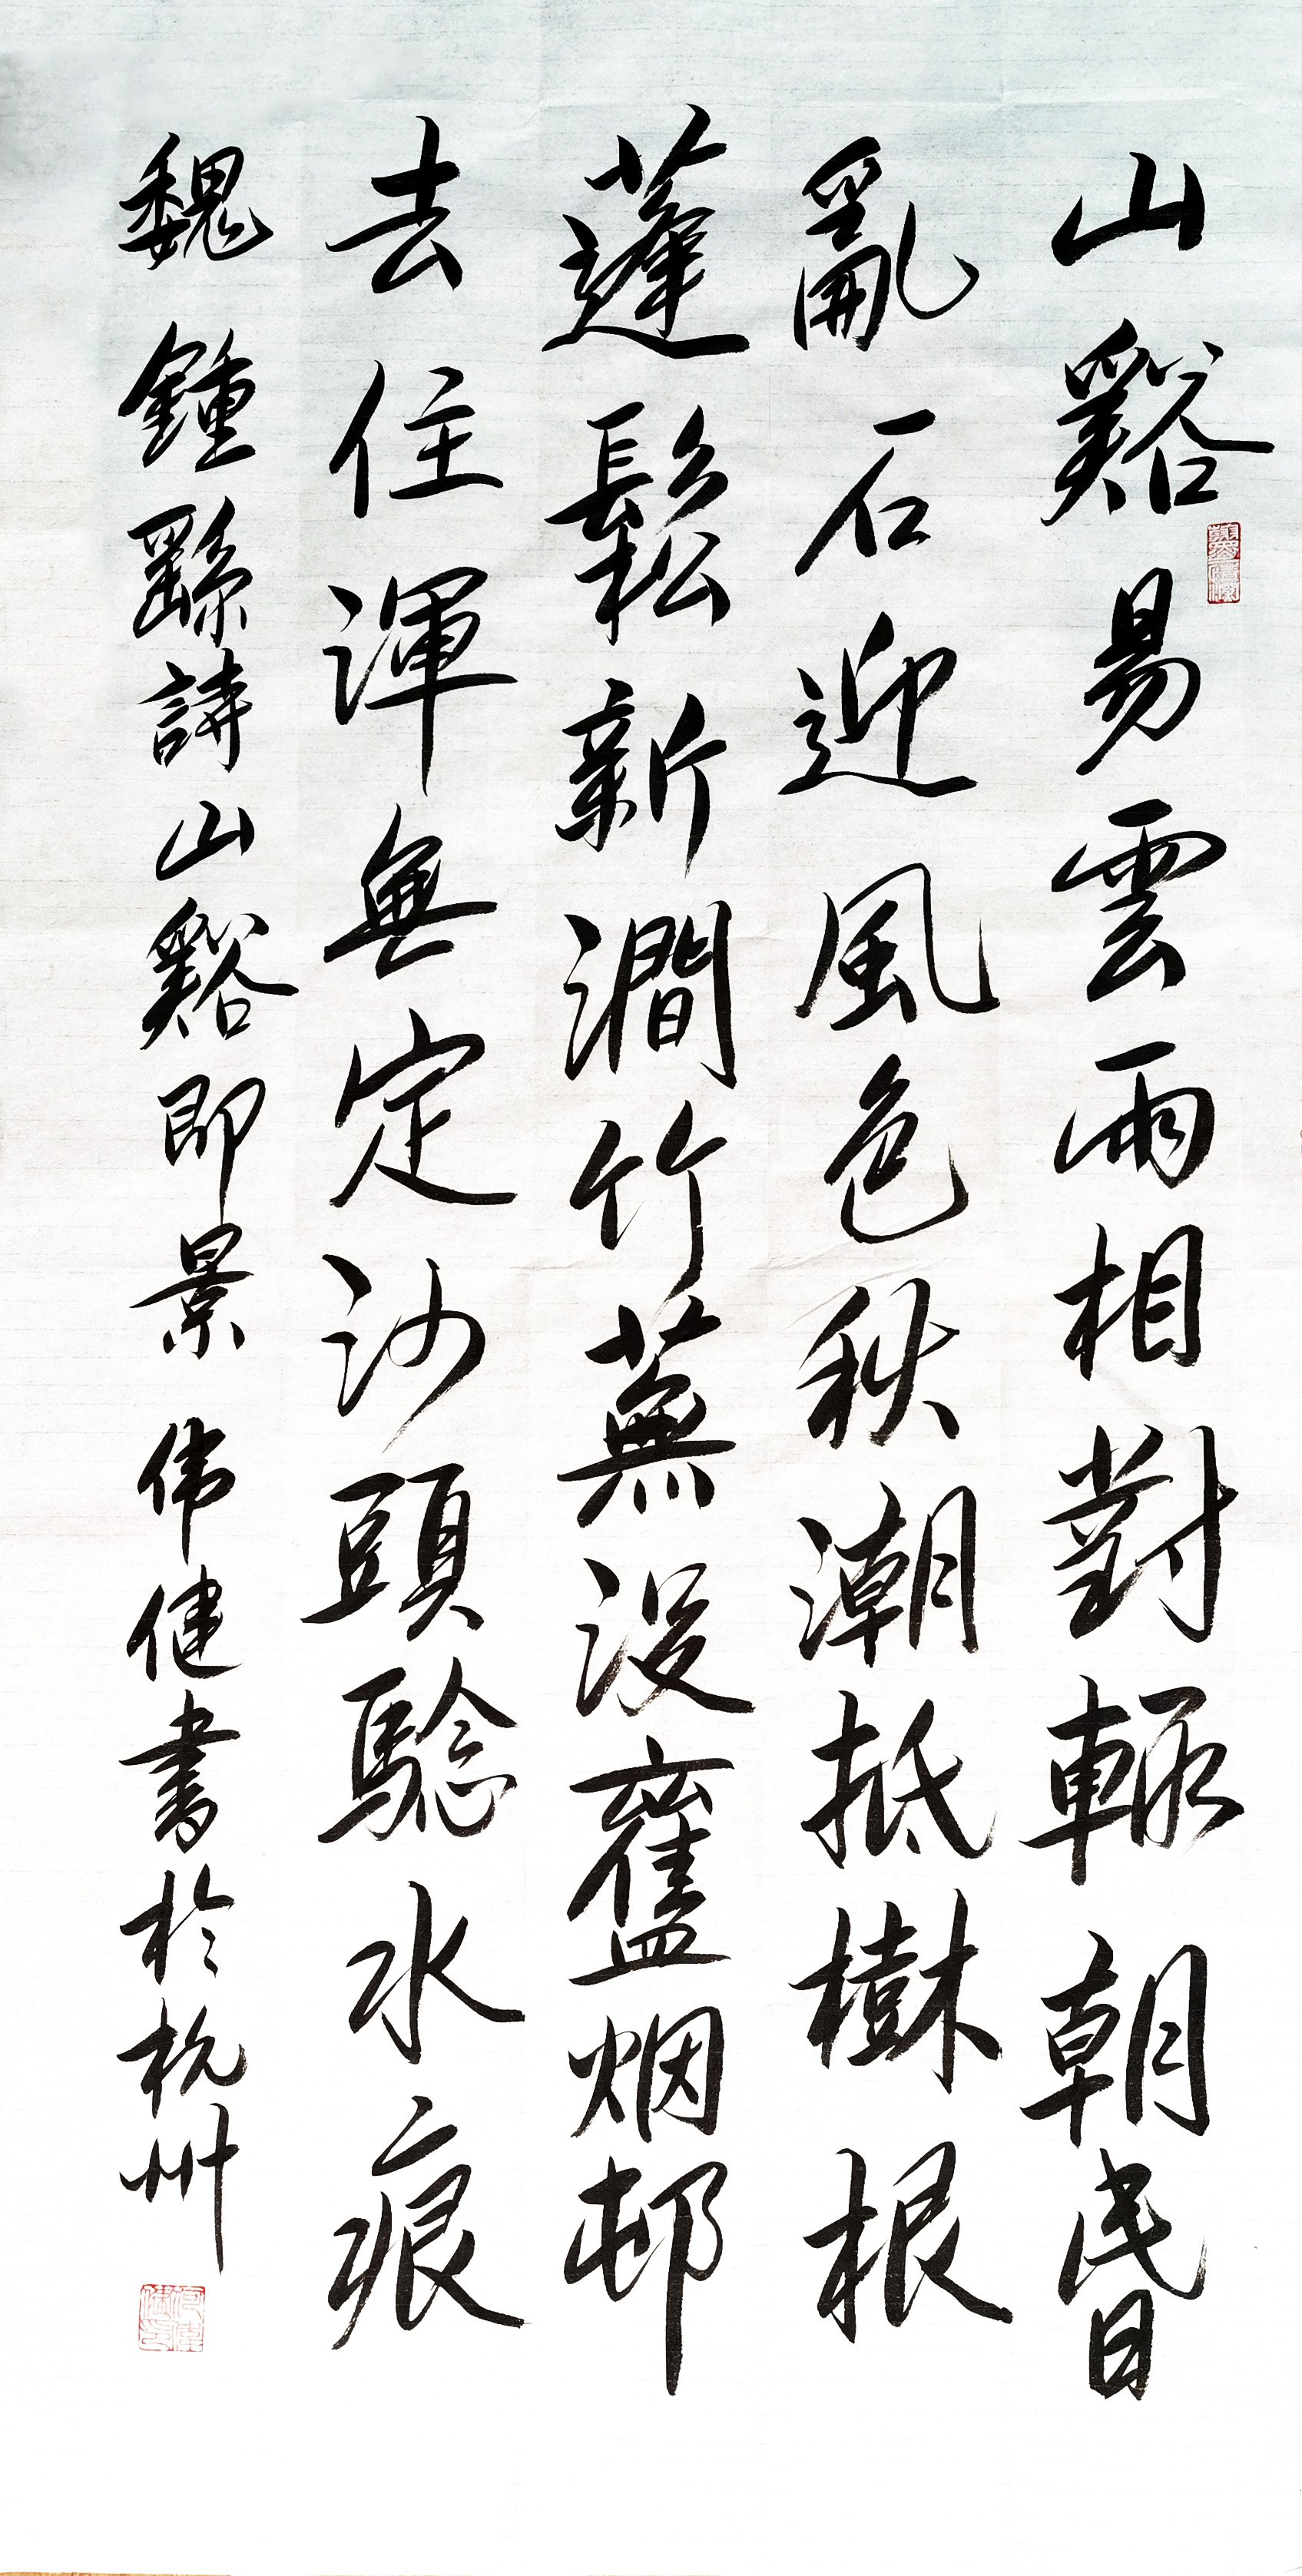 山谿易雲雨相對輙朝昬
亂石迎風色秋潮抵樹根
蓬鬆新澗竹蕪没舊烟邨
去住渾無定沙頭騐水痕
魏鍾繇詩山谿即景 伟健書於杭州